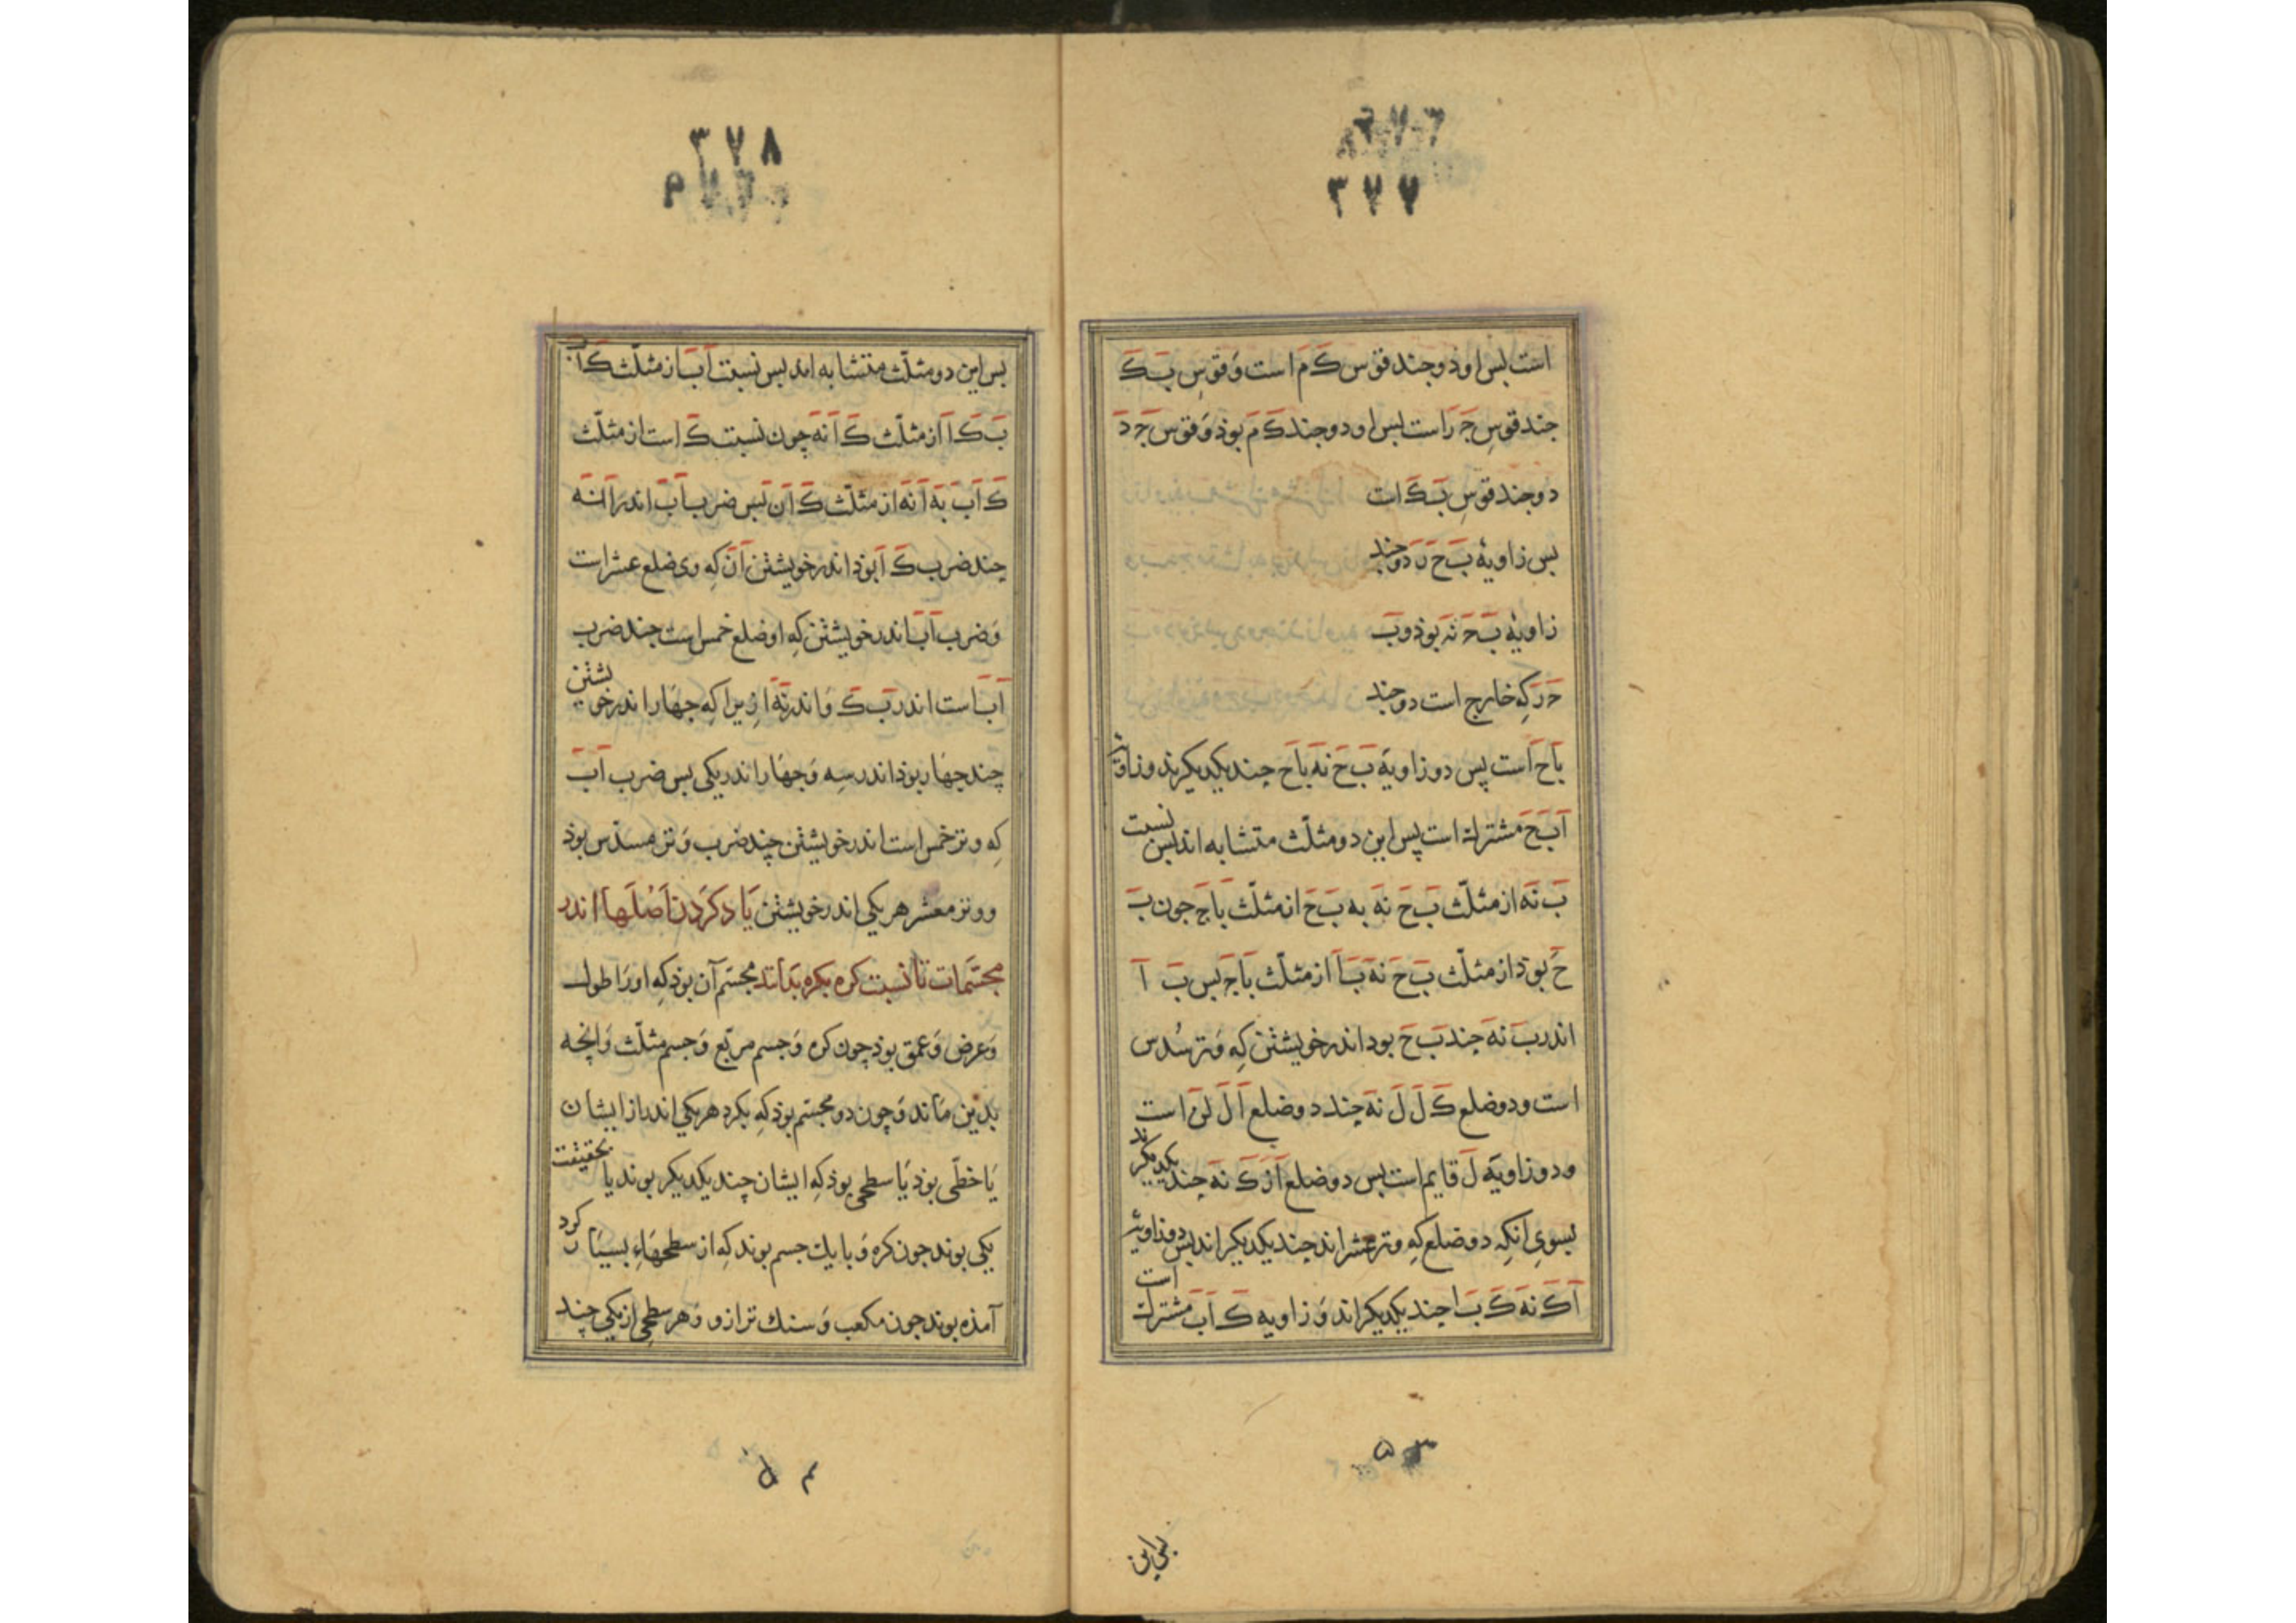 ۳۷۷
است بس او ذو جند قوس ک م است و قوس ب ک
جند قوس ج ر است بس او دو جند ک م بوذ و قوس ج د
دو جند قوس ب ک است
بس زاویهٔ ب ح ر دو جند
زاویهٔ ب ح نه بوذ و ب
ح ر که خارج است دو جند
باح است پس دو زاویهٔ ب ح نه باح جند یکدیکرند و زاویهٔ
آ ب ح مشترک است پس این دو مثلّث متشابه اند بس نسبت
ب نه از مثلّث ب ح نه به ب ح از مثلّث باح جون ب
ح بوذ از مثلّث ب ح نه ب آ از مثلّث باح بس ب آ
اندر ب نه جند ب ح بود اندر خویشتن که وتر سُدس
است و دو ضلع ک ل ل نه جند دو ضلع آ ل لن است
و دو زاویهٔ ل قایم است بس دو ضلع آ ز ک نه جند یکدیکرند
بسوی انکه دو ضلع که وتر عشراند جند یکدیکراند بس دو زاویهٔ
آ ک نه ک ب ا جند یکدیکراند و زاویه ک آ ب مشترک است
۵۳
بس این
۳۷۸
بس این دو مثلّث متشابه اند بس نسبت آب از مثلّث ک آب
ب ک ا از مثلّث ک آ نه چون نسبت ک است از مثلّث
ک آب به آ نه از مثلّث ک آن بس ضرب آب اندر آنه
چند ضرب ک آ بوذ اندر خویشتن آن که وی ضلع عشر است
و ضرب آب اندر خویشتن که او ضلع خمس است جند ضرب
آب است اندر ب ک و اندر نه ا زیرا که جهار اندر خویشتن
چند جهار بوذ اندر سه و جهار اندر یکی بس ضرب آب
که وتر خمس است اندر خویشتن چند ضرب وتر مسدّس بوذ
و وتر معشر هر یکی اندر خویشتن یاد کردن اصلها اندر
مجسّمات تا نسبت کره بکره بداند مجسّم آن بوذ که او را طول
و عرض و عمق بوذ چون کره و جسم مربّع و جسم مثلّث و انچه
بدین ماند و چون دو مجسّم بوذ که بکرد هر یکی اندر از ایشان
یا خطّی بوذ یا سطحی بوذ که ایشان چند یکدیکر بوند یا بحقیقت
یکی بوند جون کره و با یک جسم بوند که از سطحهاء بسیار کرد
آمذه بوند جون مکعب و سنک ترازو و هر سطحی از یکی چند